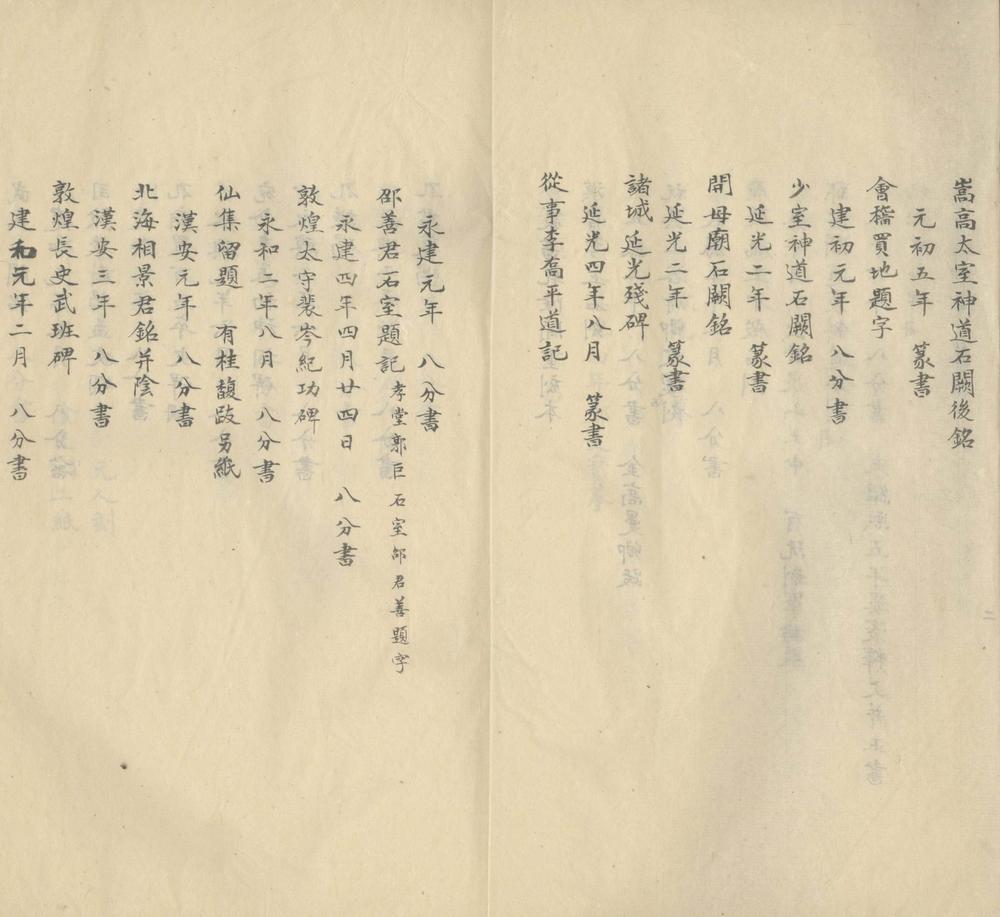 嵩高太室神道石闕後銘
元初五年　篆書
會稽買地題字
建初元年　八分書
少室神道石闕銘
延光二年　篆書
開母廟石闕銘
延光二年　篆書
諸城　延光殘碑
延光四年八月　篆書
從事李喬平道記
永建元年　八分書
邵善君石室題記 孝堂郭巨石室邰君善題字
永建四年四月廿四日　八分書
敦煌太守裴岑紀功碑
永和二年八月　八分書
仙集留題　有桂馥跋另紙
漢安元年　八分書
北海相景君銘并陰
漢安三年　八分書
敦煌長史武班碑
建和元年二月　八分書